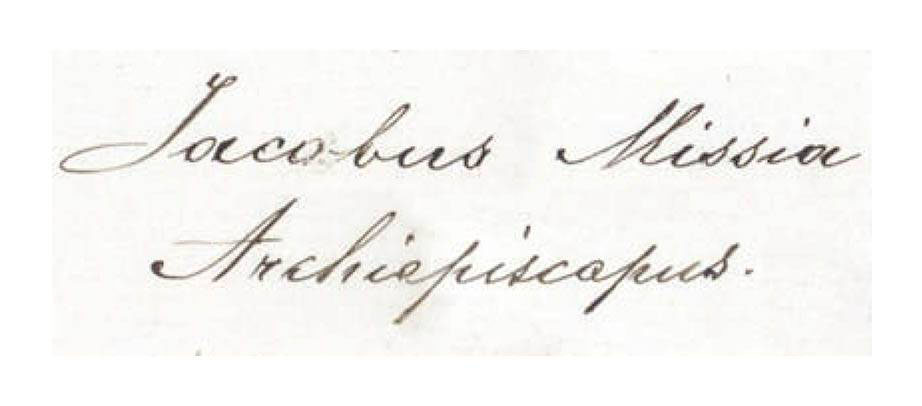 Jacobus Missia
Archiepiscopus.